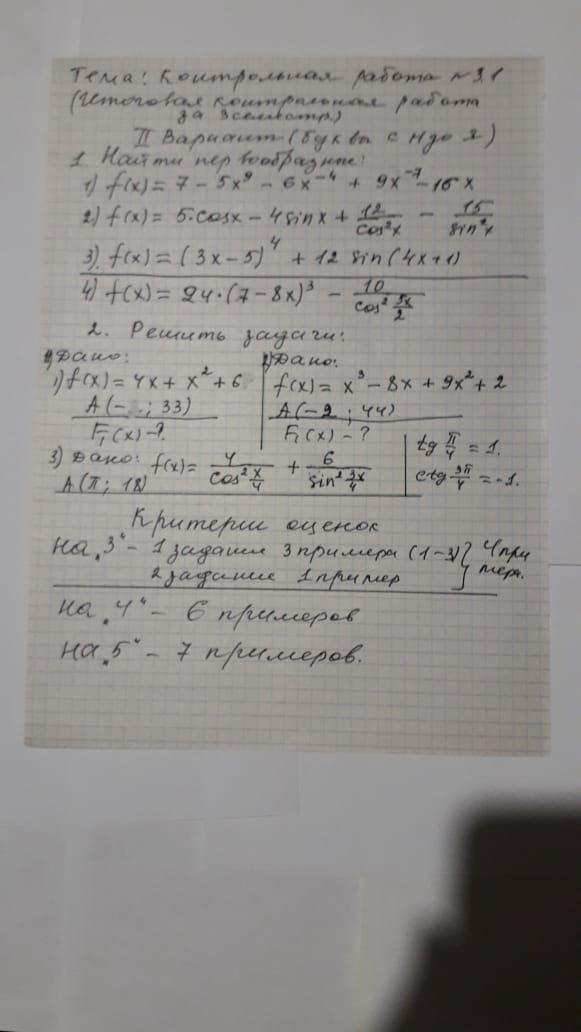 Тема: Контрольная работа №3.1
(Итоговая контрольная работа
за семестр.)
II Вариант (буквы с Н до Я)
1. Найти первообразные:
1) f(x) = 7 - 5x⁹ - 6x⁻⁴ + 9x⁻⁷ - 16x
2) f(x) = 5·cosx - 4sinx + 12/cos²x - 15/sin²x
3) f(x) = (3x-5)⁴ + 12 sin(4x+1)
4) f(x) = 24·(7-8x)³ - 10/cos² 5x/2
2. Решить задачи:
1) Дано:
1) f(x) = 4x + x² + 6
A(- ; 33)
F₁(x) - ?
2) Дано:
f(x) = x³ - 8x + 9x² + 2
A(-2 ; 44)
F₁(x) - ?
tg π/4 = 1.
ctg 3π/4 = -1.
3) Дано: f(x) = 4/cos² x/4 + 6/sin² 3x/4
A(π; 18)
Критерии оценок
На „3" - 1 задание 3 примера (1-3) } 4 при
2 задание 1 пример мера.
На „4" - 6 примеров
На „5" - 7 примеров.